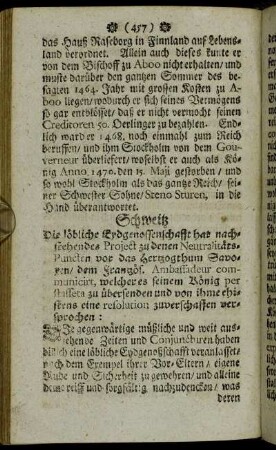 (457)
das Hauß Raseborg in Finnland auf Lebens-
land verordnet. Allein auch dieses kunte er
von dem Bischoff zu Aboo nicht erhalten/ und
muste darüber den gantzen Sommer des be-
sagten 1464. Jahr mit grossen Kosten zu A-
boo liegen/ wodurch er sich seines Vermögens
so gar entblösset/ daß er nicht vermocht seinen
Creditoren 50. Oerlinger zu bezahlen. End-
lich ward er 1468. noch einmahl zum Reich
beruffen/ und ihm Stockholm von dem Gou-
verneur überliefert/ woselbst er auch als Kö-
nig Anno 1470. den 15. Maji gestorben/ und
so wohl Stockholm als das gantze Reich/ sei-
ner Schwester Sohne/ Steno Sturen, in die
Hand überantwortet.
Schweitz
Die löbliche Eydgenossenschafft hat nach-
stehendes Project zu denen Neutralitäts-
Puncten vor das Hertzogthum Savo-
yen/ dem Frantzös. Ambassadeur com-
municirt, welcher es seinem König per
staffeta zu übersenden und von ihme ehi-
stens eine resolution zuverschaffen ver-
sprochen:
gegenwärtige mißliche und weit aus-
sehende Zeiten und Conjuncturen haben
eine löbliche Eydgenoßschafft veranlasset/
nach dem Exempel ihrer Vor-Eltern/ eigene
Ruhe und Sicherheit zu gewehren/ und alleine
reiff und sorgfältig nachzudencken/ was
deren